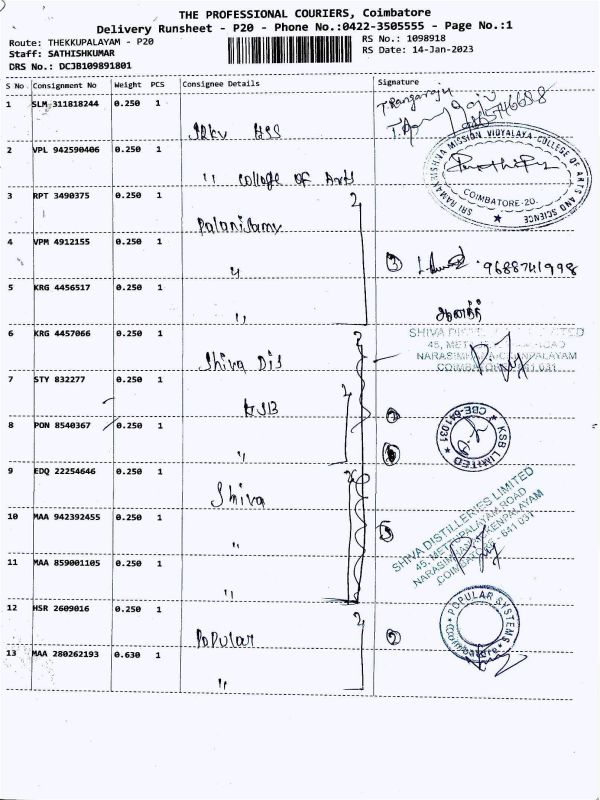 THE PROFESSIONAL COURIERS, Coimbatore
Delivery Runsheet - P20 - Phone No.:0422-3505555 - Page No.:1
Route: THEKKUPALAYAM - P20
Staff: SATHISHKUMAR
DRS No.: DCJB109891801
RS No.: 1098918
RS Date: 14-Jan-2023
S No. Consignment No Weight PCS Consignee Details Signature
1 SLM 311818244 0.250 1
HSS
2 VPL 942590406 0.250 1
" College of Arts
SRI RAMAKRISHNA MISSION VIDYALAYA COLLEGE OF ARTS AND SCIENCE
COIMBATORE-20.
3 RPT 3490375 0.250 1
Palanisamy
4 VPM 4912155 0.250 1
"
③ 9688741998
5 KRG 4456517 0.250 1
"
6 KRG 4457066 0.250 1
Shiva Dis
SHIVA DISTILLERIES LIMITED
NARASIMHANAICKENPALAYAM
COIMBATORE - 641 031
7 STY 832277 0.250 1
KSB
8 PON 8540367 0.250 1
"
KSB LIMITED
CBE-641 031
9 EDQ 22254646 0.250 1
Shiva
10 MAA 942392455 0.250 1
"
SHIVA DISTILLERIES LIMITED
45, METTUPALAYAM ROAD
NARASIMHANAICKENPALAYAM
COIMBATORE - 641 031
11 MAA 859001105 0.250 1
"
12 HSR 2609016 0.250 1
Popular
②
POPULAR SYSTEMS
Coimbatore
13 MAA 280262193 0.630 1
"